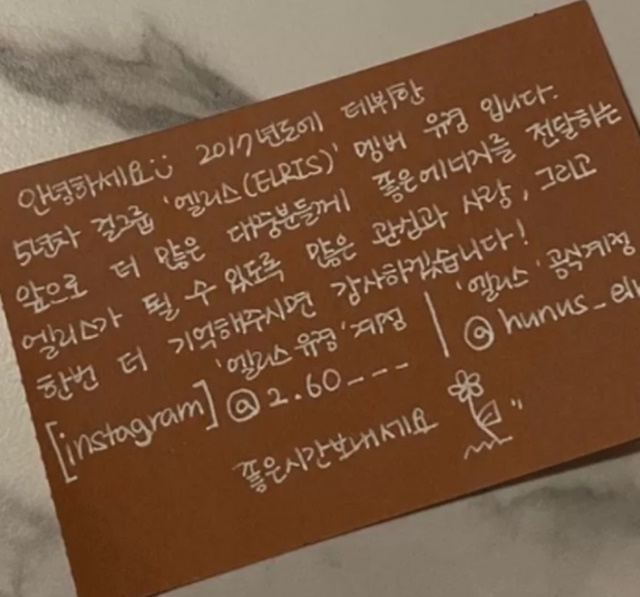 안녕하세요 2017년도에 데뷔한
5년차 걸그룹 '엘리스(ELRIS)' 멤버 유경 입니다.
앞으로 더 많은 대중분들께 좋은에너지를 전달하는
엘리스가 될 수 있도록 많은 관심과 사랑, 그리고
한번 더 기억해주시면 감사하겠습니다!
'엘리스 유경' 계정 | '엘리스' 공식계정
[instagram] @2.60--- @hunus_elr
좋은시간보내세요